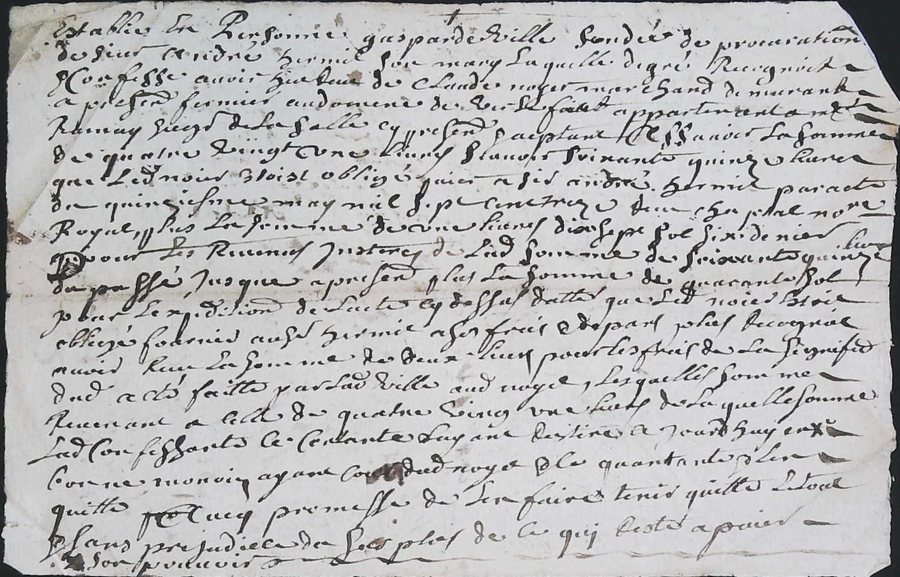 Establie En Personne gasparde Ville fondée de procuration
de sieur André hermil son mary Laquelle degré Recognoit
& Confesse avoir de Claude noyer marchand
a present fermier au domene de appartenant a
Ramay de La salle cy present acceptant assavoir La somme
de quatre vingt une livres scavoir soixante quinze livres
que Led noier obligé paier a sr andré hermil par acte
du quinziesme may mil sept cent treze Chastal nore
Royal, plus La somme de une livres dixsept sol six denier
pour Les Interes de Lad somme de soixante quinze livres
du passé Jusque a present plus La somme de quarante sol
pour Lexpedition de Lacte cy dessus datté que Led noier
obligé fournir aud hermil a ses frais & despans plus Recognoit
avoir Reçu La somme de deux livres pour les frais de La
dud acte faitte par Lad Ville aud noyer, Lesquelles somme
Revenant a Celle de quatre vingt une livres de Laquelle somme
Lad Confessante Ce Contante Layant Retiré a Jourdhuy en
bonne monoie ayant Cours dud noyer & le quitante & len
quitte avec promesse de Len faire tenir quitte
& sans prejudice du surplus de Ce quj Reste a paier
son pouvoir